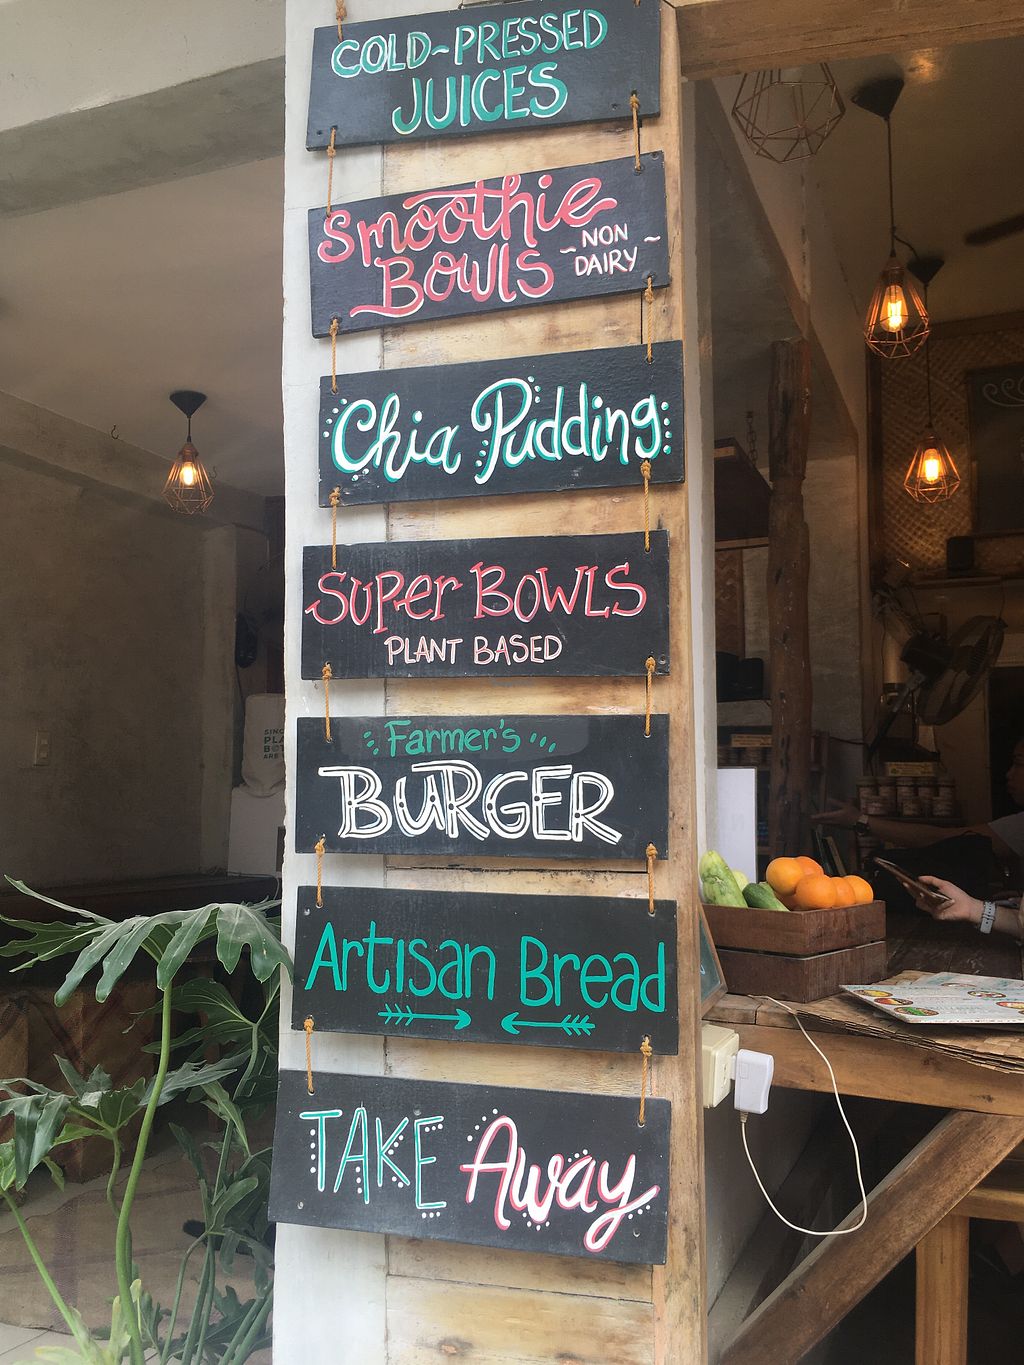 COLD~PRESSED
JUICES
Smoothie
Bowls
~NON~
DAIRY
Chia Pudding
SUPer BOWLS
PLANT BASED
Farmer's
BURGER
Artisan Bread
TAKE Away